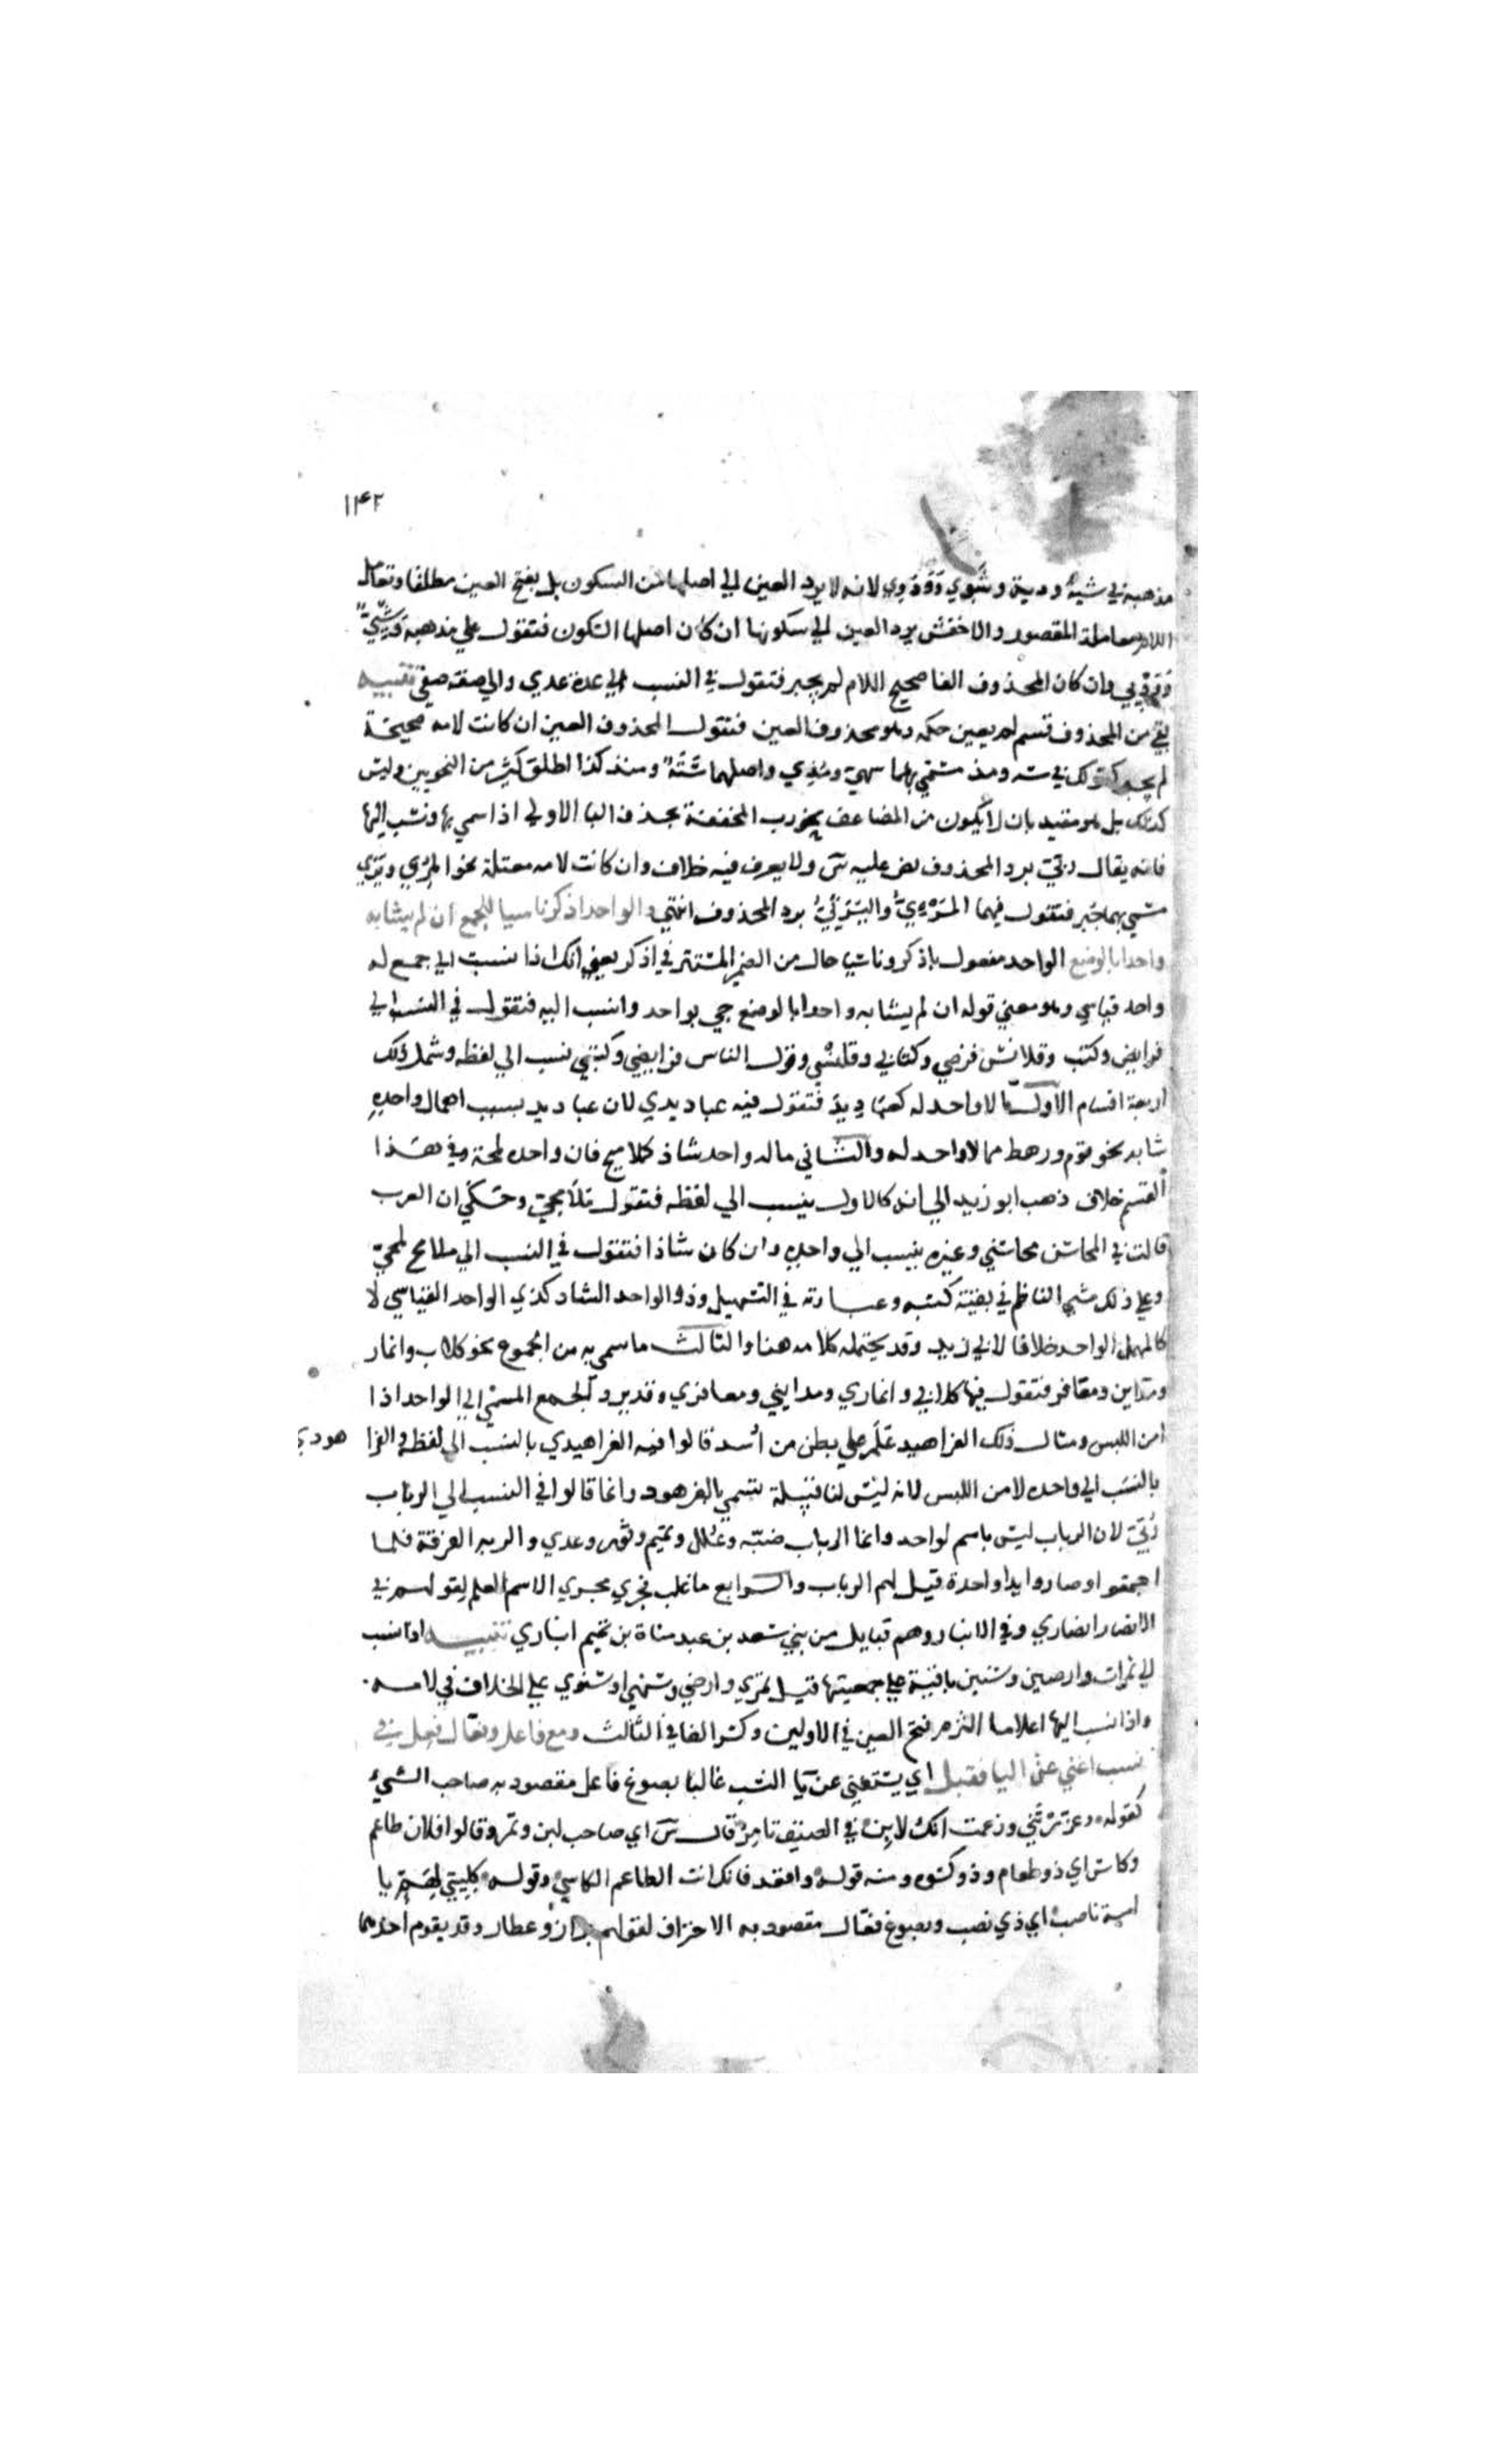 ١١٤٢
مذهبه في شية ودية وشوي وودوي لانه لا يرد العين الي اصلها من السكون بل يفتح العين مطلقا وتعامل
اللام معاملة المقصور والاخفش يرد العين الي سكونها ان كان اصلها السكون فتقول علي مذهبه وشيي
وودي وان كان المحذوف الفا صحيح اللام لم يجبر فتقول في النسب الي عدة عدي والي صفة صفي تنبيه
بقي من المحذوف قسم لم يبين حكمه وهو محذوف العين فتقول المحذوف العين ان كانت لامه صحيحة
لم يجبر كقولك في سه ومذ مسمي بهما سهي ومذي واصلهما سته ومنذ كذا اطلق كثير من النحويين وليس
كذلك بل هو مقيد بان لا يكون من المضاعف نحو رب المخففة بحذف البا الاولي اذا سمي بها ونسب اليها
فانه يقال ربي برد المحذوف نص عليه س ولا يعرف فيه خلاف وان كانت لامه معتلة نحو المري ويري
مسمي بهما جبر فتقول فيهما المرءي واليرئي برد المحذوف انتهي والواحد اذكر ناسبا للجمع ان لم يشابه
واحدا بالوضع الواحد مفعول باذكر وناسبا حال من الضمير المستتر في اذكر يعني انك اذا نسبت الي جمع له
واحد قياسي وهو معني قوله ان لم يشابه واحدا بالوضع جي بواحد وانسب اليه فتقول في النسب الي
فرايض وكتب وقلانس فرضي وكتابي وقلنسي وقول الناس فرايضي وكتبي نسب الي لفظه وشمل ذلك
اربعة اقسام الاول ما لا واحد له كعباديد فتقول فيه عباديدي لان عباديد بسبب اهمال واحده
شابه نحو قوم ورهط مما لا واحد له والثاني ماله واحد شاذ كملاميح فان واحده لمحة وفي هذا
القسم خلاف ذهب ابو زيد الي انه كالاول ينسب الي لفظه فتقول ملامحي وحكي ان العرب
قالت في المحاسن محاسني وغيره ينسب الي واحده وان كان شاذا فتقول في النسب الي ملامح لمحي
وعلي ذلك مشي الناظم في بقية كتبه وعبارته في التسهيل وذو الواحد الشاذ كذي الواحد القياسي لا
كالمهمل الواحد خلافا لابي زيد وقد يحتمله كلامه هنا والثالث ما سمي به من الجموع نحو كلاب وانمار
ومداين ومعافر فتقول فيها كلابي وانماري ومدايني ومعافري وقد يرد الجمع المسمي الي الواحد اذا
امن اللبس ومثال ذلك الفراهيد علم علي بطن من اسد قالوا فيه الفراهيدي بالنسب الي لفظه والفرا هودي
بالنسب الي واحده لامن اللبس لانه ليس لنا قبيلة تسمي بالفرهود وانما قالوا في النسب الي الرباب
ربي لان الرباب ليس باسم لواحد وانما الرباب ضبة وعكل وتميم وثور وعدي والربه الفرقة فلما
اجتمعوا وصاروا يدا واحدة قيل لهم الرباب والرابع ما غلب فجري مجري الاسم العلم لقولهم في
الانصار انصاري وفي الابنا وهم قبايل من بني سعد بن عبد مناة بن تميم ابناري تنبيه اذا نسب
الي تمرات وارضين وسنين باقية علي جمعيتها قيل تمري وارضي وسنهي او سنوي علي الخلاف في لامه
واذا نسب اليها اعلاما التزم فتح العين في الاولين وكسر الفا في الثالث ومع فاعل وفعال فعل في
نسب اغني عن اليا فقبل اي يستغني عن يا النسب غالبا بصوغ فاعل مقصود به صاحب الشيء
كقوله وغررتني وزعمت انك لابن في الصيف تامر قال س اي صاحب لبن وتمر وقالوا فلان طاعم
وكاس اي ذو طعام وذو كسوه ومنه قوله واقعد فانك انت الطاعم الكاسي وقوله كليني لهم يا
اميمة ناصب اي ذي نصب وبصوغ فعال مقصود به الاحتراف لقولهم بزاز وعطار وقد يقوم احدهما